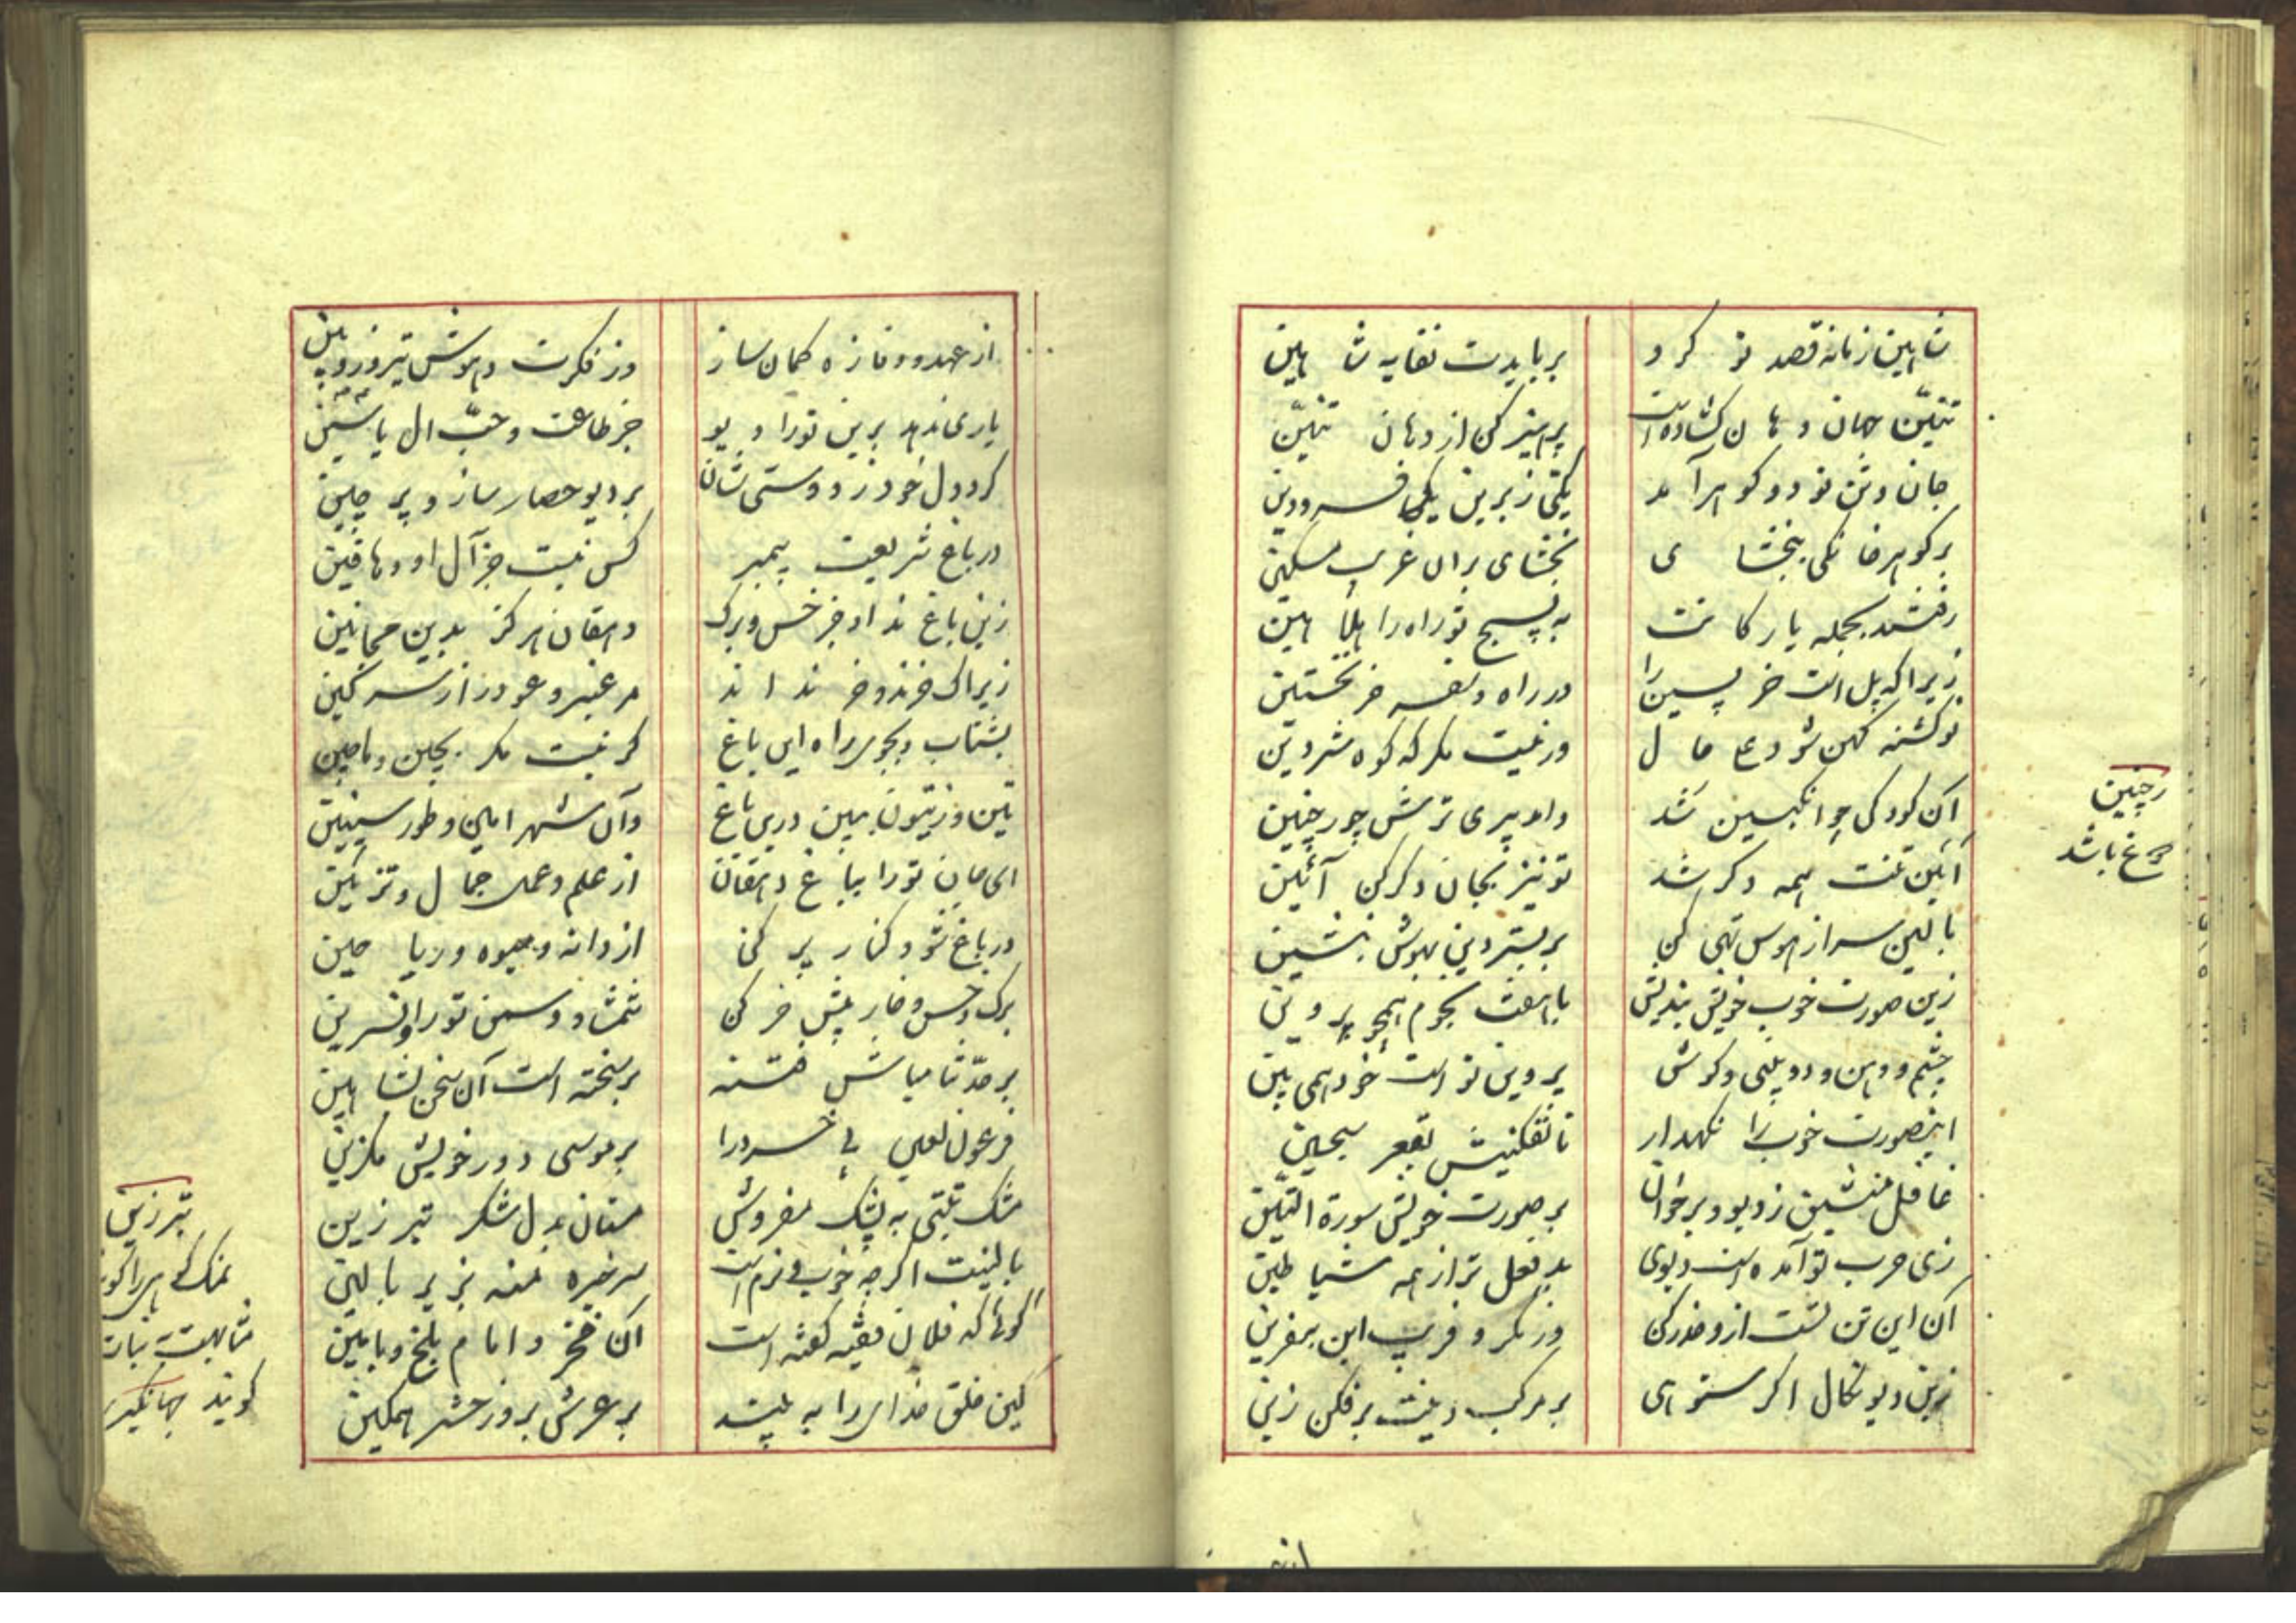 شاهین زمانه قصد تو کرد
بربایدت نقایه شاهین
تنّین جهان دهان کشاده است
پرهیز کن از دهان تنّین
جان و تن تو دو کوهر آمد
یکی زبرین یکی فرودین
بر کوهر خاکی بخشای
بخشای بران غریب مسکین
رفتند بجمله یارکانت
به پسیچ تو راه را هلا هین
زیرا که پل است خر پسین را
در راه خر نخستین
نو کشته کهن شود علی حال
ور نیست مکر که کوه شروین
آن کودکی چو انکبین شد
وامد پیری ترش چو رخپین
آئین تنت همه دکر شد
تو نیز بجان دکر کن آئین
بالین سر از هوس تهی کن
بر بستر دین بهوش بنشین
زین صورت خوب خویش بندیش
با هفت نجوم همچو پروین
چشم و دهن و دو بینی و کوش
پروین تو است خود همی بین
اینصورت خوب را نکهدار
تا نفکنیش بقعر سجین
غافل منشین ز دیو و برخوان
بر صورت خویش سورة التین
زی حرب تو آمده است دیوی
بد فعل تر از همه شیاطین
آن این تن تست ازو حذر کن
وز مکر و فریب این بنفرین
زین دیو نکال اکر ستوهی
بر مرکب دینت برفکن زین
رخپین
چرغ باشد
از عهد و وفا زه کمان ساز
وز فکرت و هوش تیر و زوبین
یاری ندهد برین تو را دیو
جز طاعت و حبّ آل یاسین
کرد دل خود ز دوستی شان
بر دیو حصار ساز و پرچین
در باغ شریعت پیمبر
کس نیست جز آل او دهاقین
زین باغ نداد جز خس و برک
دهقان هرکز بدین مجانین
زیراک خرند و خر نداند
مر عنبر و عود را ز سرکین
بشتاب و بجوی راه این باغ
کر نیست مکر بچین و ماچین
تین و زیتون ببین درین باغ
وآن شهر امین و طور سینین
ای جان تو را بباغ دهقان
از علم و عمل جمال و تزئین
در باغ شو و کنار پر کن
از دانه و میوه و ریاحین
برک و خس و خار پیش خر کن
شمشاد و سمن تو را و نسرین
بر حدّثنا مباش فتنه
بر سخته است آن سخن بشاهین
فرعون لعین بی خرد را
بر موسی دور خویش مکزین
مشک تبتی به پشک مفروش
مستان بدل شکر تبرزین
بالینت اکرچه خوب و نرم است
سر خیره منه بزیر بالین
کوئی که فلان فقیه کفته است
آن فخر و امام بلخ و بامین
کین خلق خدای را به بینند
بر عرش بروز حشر همکین
تبرزین
نمک کوهی را کویند
مشابهت نبات
کویند جهانکیری